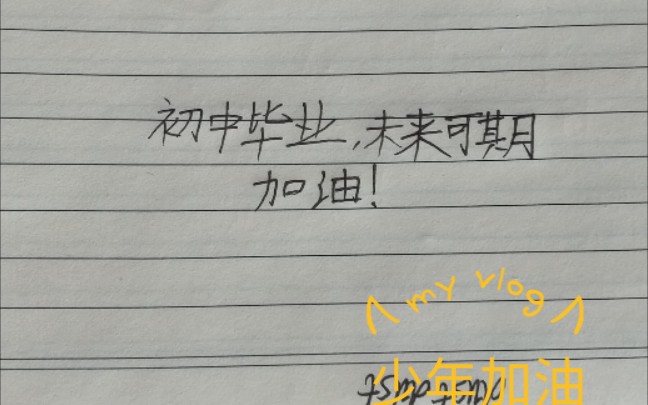 初中毕业,未来可期
加油!
my vlog
少年加油